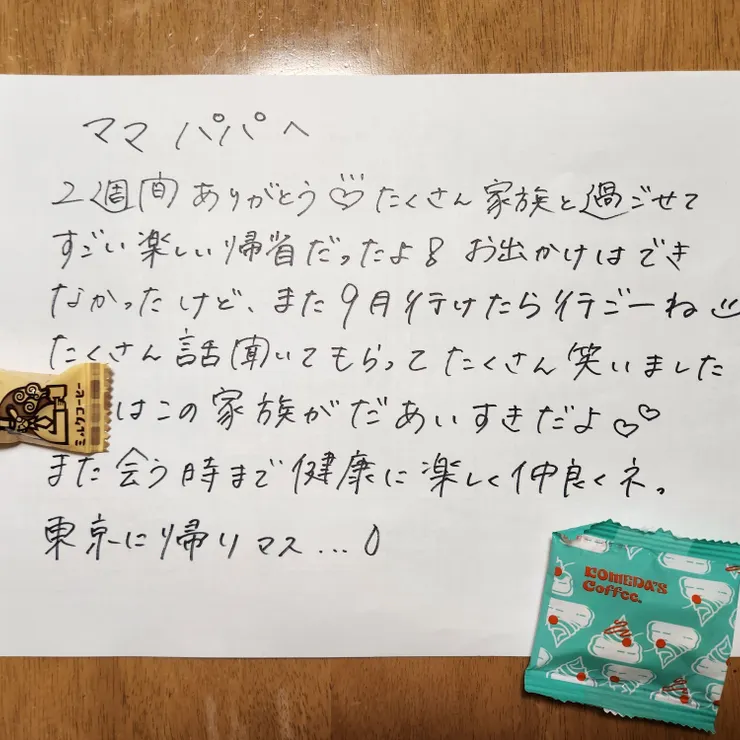 ママ パパへ
2週間ありがとう♡たくさん家族と過ごせて
すごい楽しい帰省だったよ。お出かけはでき
なかったけど、また9月行けたら行ごーね
たくさん話聞いてもらってたくさん笑いました
はこの家族がだあいすきだよ♡♡
また会う時まで健康に楽しく仲良くネ。
東京に帰りマス...
ミルクコーヒー
KOMEDA'S
Coffee.